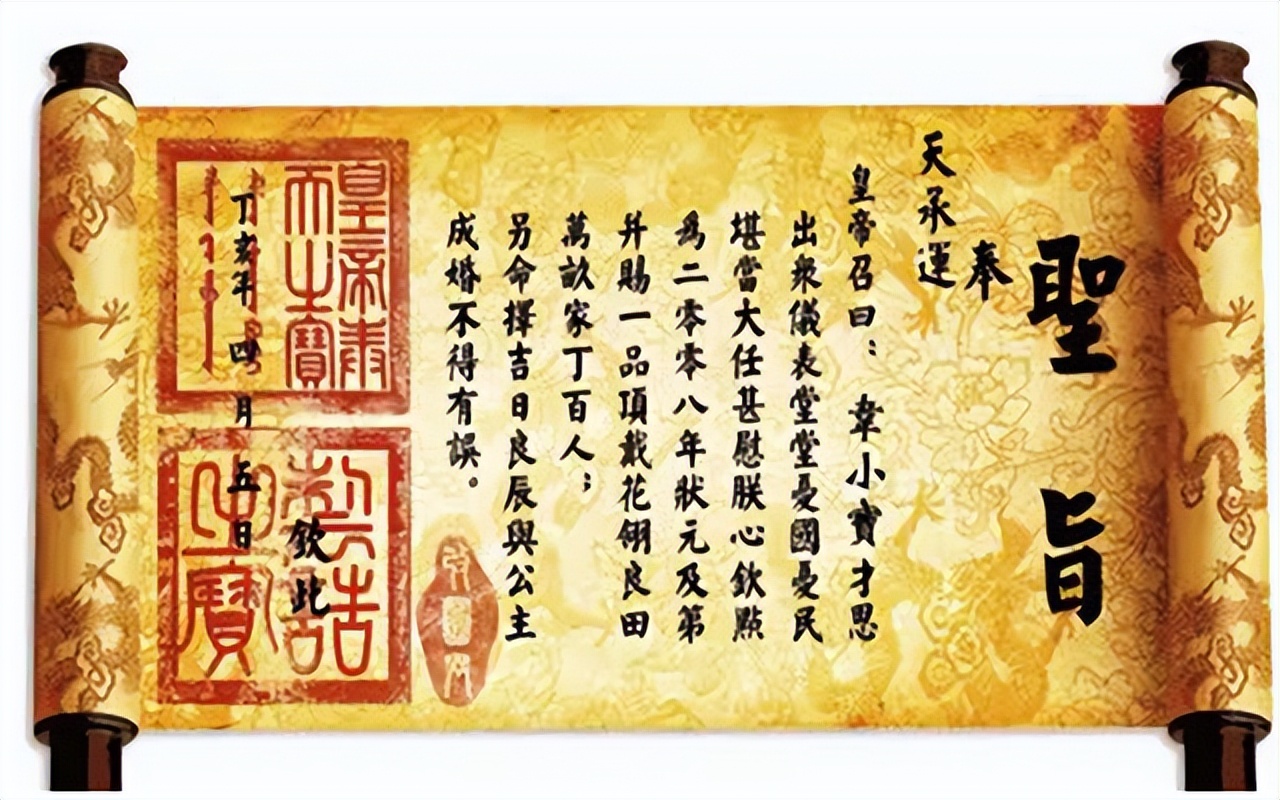 聖旨
奉
天承運
皇帝召曰：韋小寶才思
出衆儀表堂堂憂國憂民
堪當大任甚慰朕心欽點
爲二零零八年狀元及第
并賜一品頂戴花翎良田
萬畝家丁百人；
另命擇吉日良辰與公主
成婚不得有誤。
欽此
丁亥年四月五日
皇帝奉
天之寶
制誥
之寶